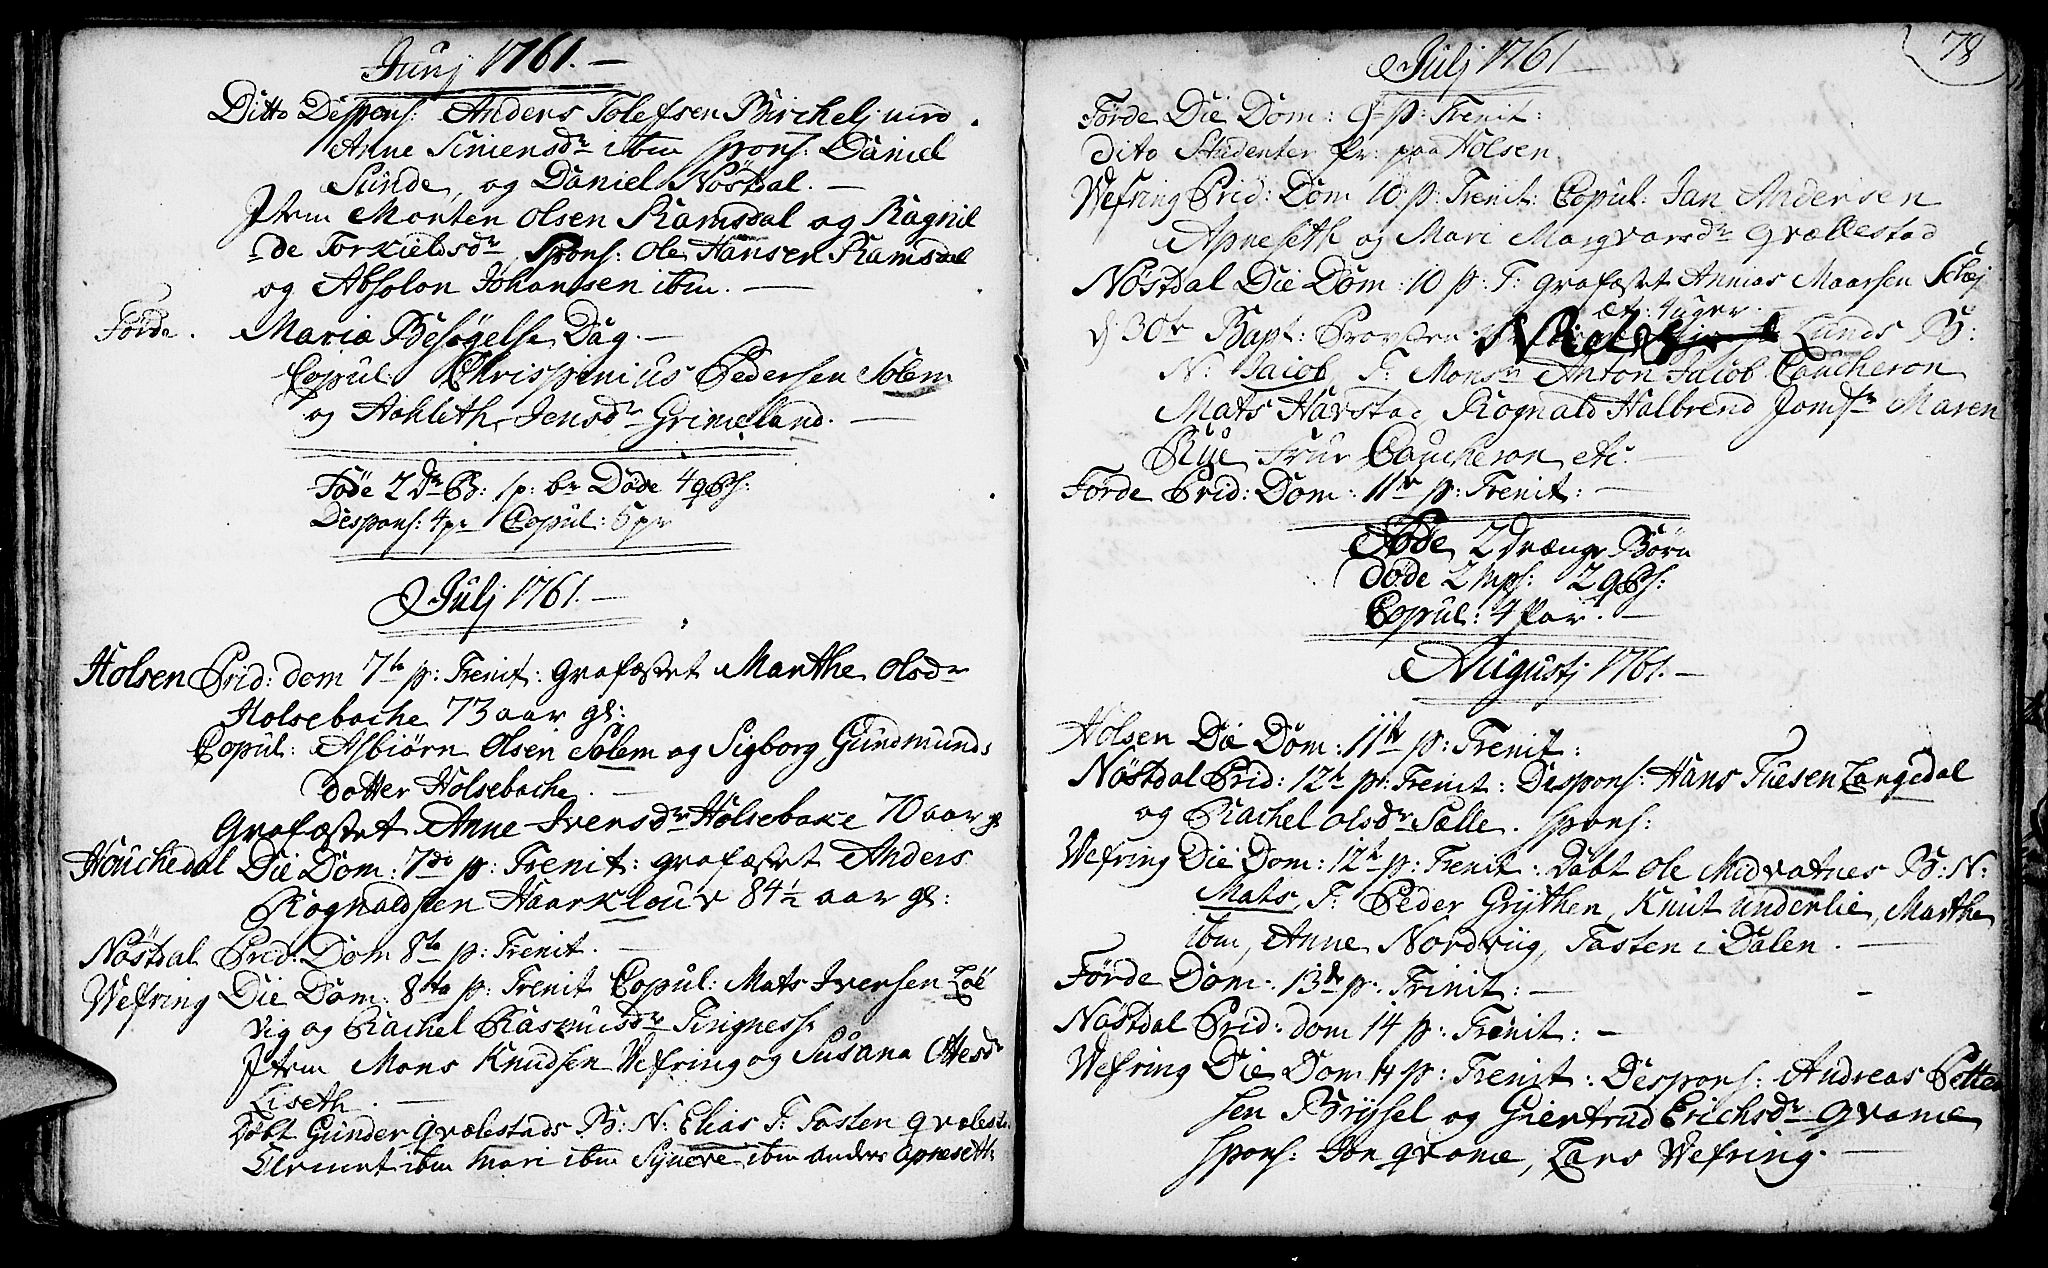 Junj 1761. —
Ditto Despons: Anders Tolefsen Birchelj med
Anne Simensdr ibm Spons: Daniel
Sunde, og Daniel Nöstdal. —
Jtem Morten Olsen Ramsdal og Ragnil
de Torkieldsdr Spons: Ole Hansen Ramsdal
og Absolon Johansen ibm. —
Förde. Mariæ Besögelse Dag. —
Copul: Chrispinius Pedersen Solem
og Aahleth Jensdr Grimeland. —
Föde 2 dr B: 1 p: br Döde 4 qPs:
Despons: 4 pr Copul: 6 pr
Julj 1761. —
Holsen Prid: dom 7de p: Trenit: Grafæstet Marthe Olsdr
Holsebache 73 aar gl:
Copul: Asbiörn Olsen Solem og Sigborg Gundmunds
dotter Holsebache. —
Grafæstet Anne Iversdr Holsebake 70 aar gl
Houchedal Die Dom: 7de p: Trenit: grafæstet Anders
Rognaldsen Haarklou 84½ aar gl:
Nöstdal Prid: Dom 8ta p: Trenit. —
Wefring Die Dom: 8ta p: Trenit Copul: Mats Iversen Löe
vig og Rachel Rasmusdr
Jtem Mons Knudsen Wefring og Susana
Liseth. —
Döbt Gunder qvælestads B: N: Elias F: Tosten
ibm Mari ibm Syneve ibm Anders Apneseth
78
Julj 1761 —
Förde Die Dom: 9 p: Trenit:
Dito Studenter pr: paa Holsen.
Wefring Prid: Dom 10 p: Trenit: Copul: Jan Andersen
Apneseth og Mari Marqvarsdr Qvællestad
Nöstdal Die Dom: 10 p: T: grafæstet Annias Maarsen Schej
æt: 4 uger.
d: 30te Bapt: Niels Lunds B:
N: Jacob F: Monsr Anton Jacob Coucheron
Mats Havstad Rognald Halbrend Jomfr Maren
Rye Frue Coucheron etc. —
Förde Prid: Dom: 11te p: Trenit: —
Föde 2 drænge Börn
Döde 2 mps: 2 qPs:
Copul: 4 Par. —
Augustj 1761. —
Holsen Die Dom: 11te p: Trenit:
Nöstdal Prid: 12te p: Trenit: Despons: Hans Tuesen Langedal
og Rachel Olsdr Sælle. Spons:
Wefring Die Dom: 12te p: Trenit: Döbt Ole Midvatnes B: N:
Mats, F: Peder Grythen, Knut Underlie, Marthe
ibm, Anne Nordviig, Tosten i Dalen. —
Förde Dom: 13de p: Trinit: —
Nöstdal Prid: dom 14 p: Trenit: —
Wefring Die Dom 14 p: Trenit: Despons: Andreas Petter
sen Bryssel og Giertrud Erichsdr Qvame
Spons: Jon Qvame, Lars Wefring. —